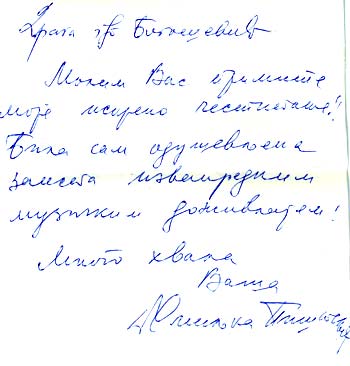 Драга гђо
Молим Вас примите
моје искрено честитање!!
Била сам одушевљена
заиста изванредним
музичким доживљајем!
Много хвала
Ваша